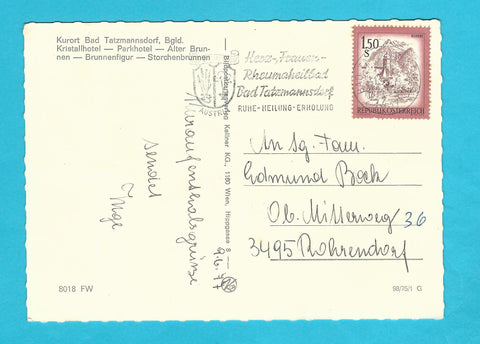 Kurort Bad Tatzmannsdorf, Bgld.
Kristallhotel — Parkhotel — Alter Brun-
nen — Brunnenfigur — Storchenbrunnen
Herz-, Frauen-
Rheumaheilbad
Bad Tatzmannsdorf
RUHE-HEILUNG-ERHOLUNG
1.50
S
REPUBLIK ÖSTERREICH
Kellner KG., 1180 Wien,
Kuraufenthaltsgrüsse
sendet
Inge
9.6.77
An Sg. Fam.
Edmund Bock
Ob. Mitterweg 36
3495 Rohrendorf
8018 FW
98/75/1 G